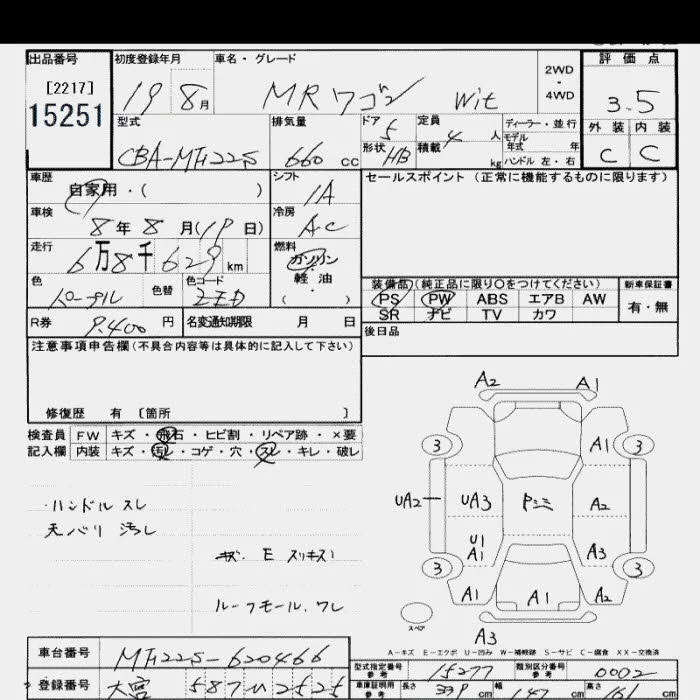 出品番号 初度登録年月 車名・グレード 2WD・4WD 評価点
[2217]
15251
19 8月 MRワゴン Wit 3.5
型式 排気量 ドア 5 定員 4 人 ディーラー・並行 外装 内装
モデル年式 年
CBA-MF22S 660 cc 形状 HB 積載 kg ハンドル 左・右 C C
車歴 シフト セールスポイント (正常に機能するものに限ります)
自家用・( ) IA
車検 冷房
8年8月(19日) AC
走行 燃料
6万8千629km ガソリン
軽・油
( )
色 色替 色コード 装備品(純正品に限り○をつけてください) 新車保証書
パープル ZZD PS PW ABS エアB AW 有・無
SR ナビ TV カワ
R券 9,400 円 名変通知期限 月 日 後日品
注意事項申告欄(不具合内容等は具体的に記入して下さい)
修復歴 有 〔箇所 〕
検査員 FW キズ・飛石・ヒビ割・リペア跡・×要
記入欄 内装 キズ・汚レ・コゲ・穴・スレ・キレ・破レ
ハンドル スレ
天バリ 汚レ
キズ. E スリキズ1
ルーフモール.ワレ
A2 A1
3 A1 3
UA2 UA3 Pミミ A2
U1
A1 A3
3 3
A1 A1 A2
スペア
A3
A-キズ E-エクボ U-凹み W-補修跡 S-サビ C-腐食 XX-交換済
車台番号 MF22S-620466
型式指定番号 参考 15277 類別区分番号 参考 0002
登録番号 大宮 587 2525
車庫証明用 参考 長さ 339 cm 幅 147 cm 高さ 161 cm